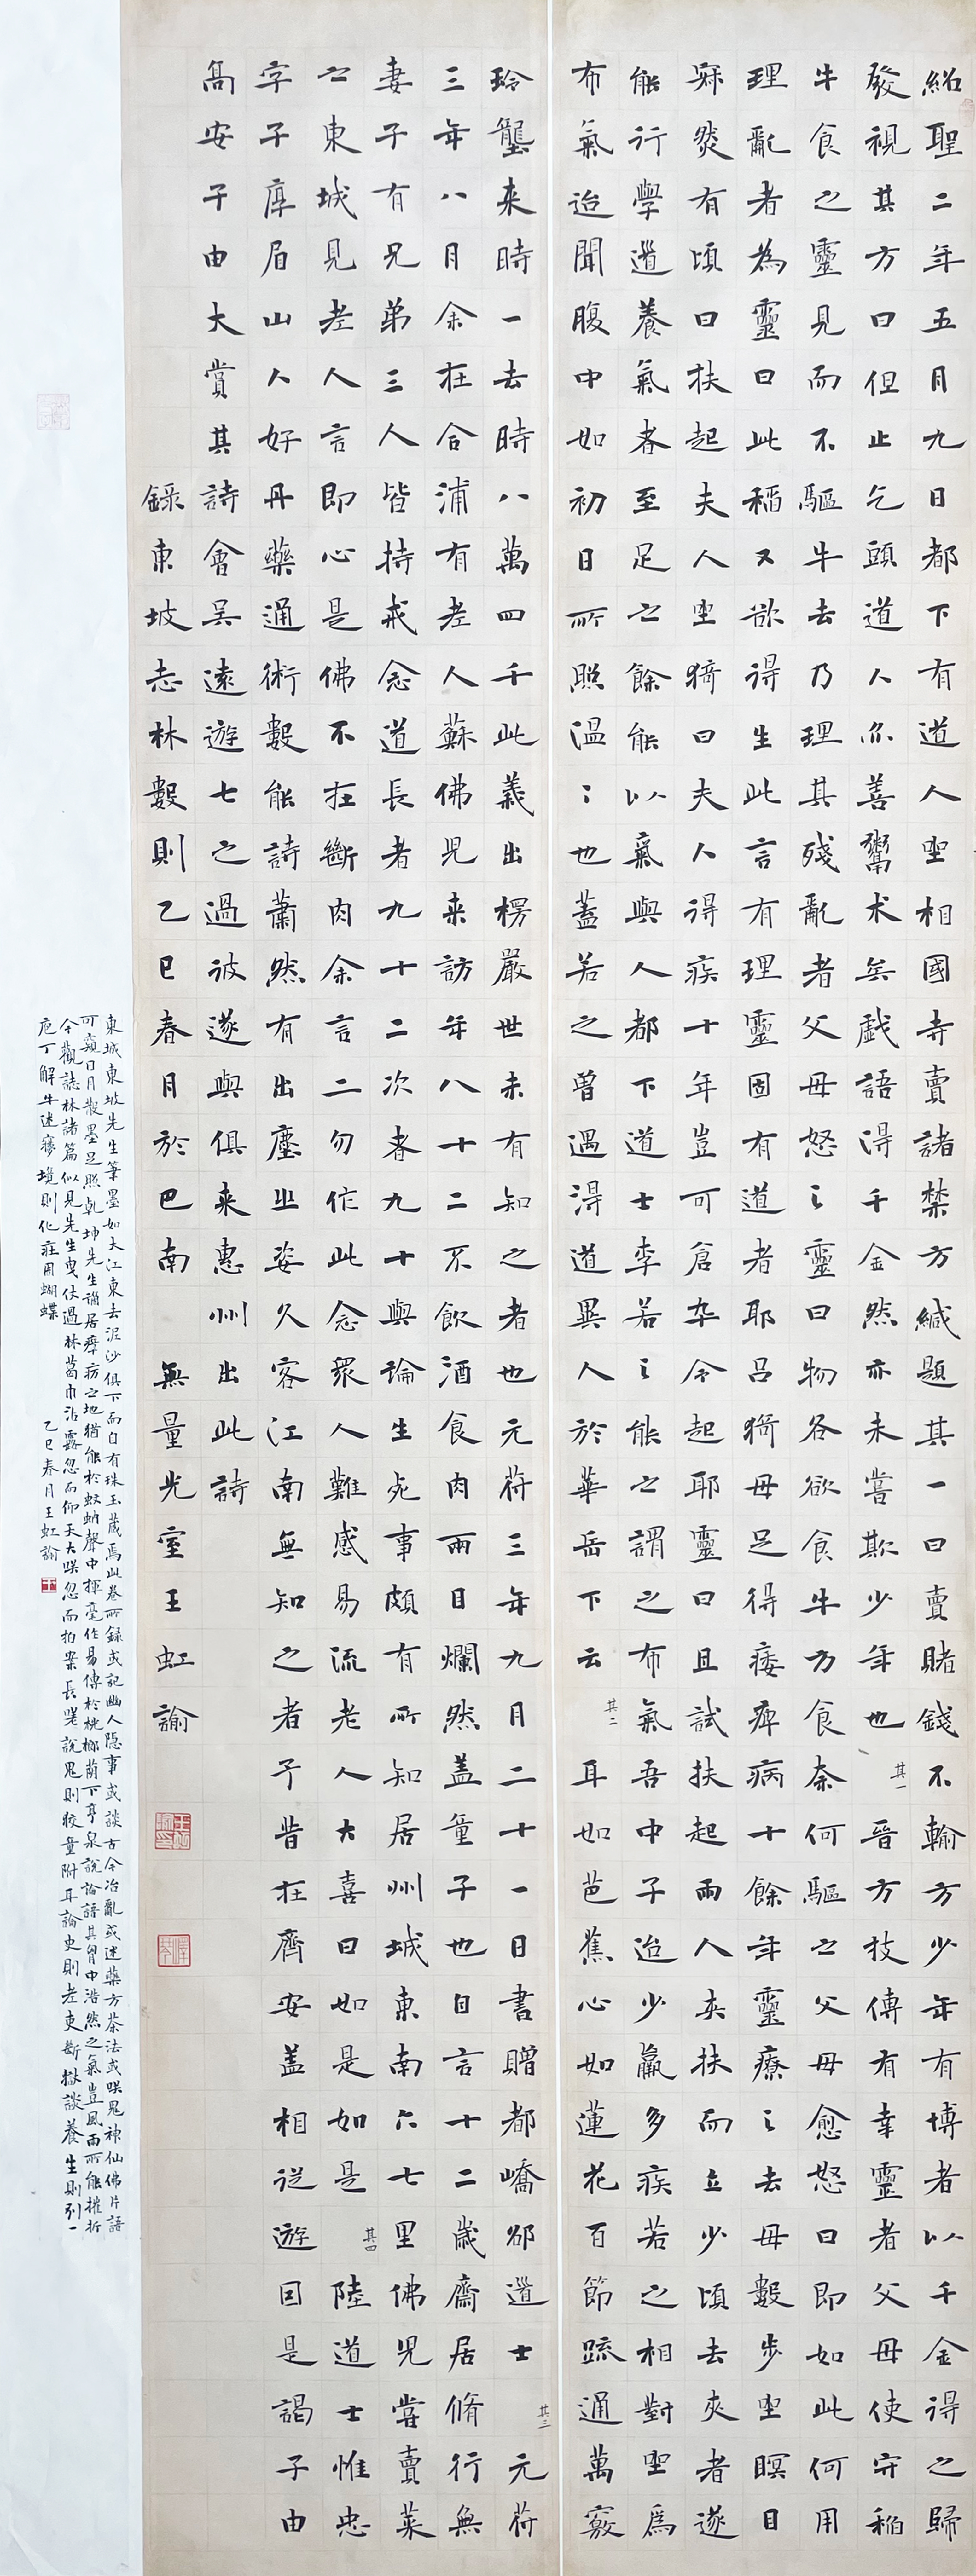 紹聖二年五月九日都下有道人坐相國寺賣諸禁方緘題其一曰賣賭錢不輸方少年有博者以千金得之歸
發視其方曰但止乞頭道人亦善鬻术矣戲語得千金然亦未嘗欺少年也其一晉方技傳有幸靈者父母使守稻
牛食之靈見而不驅牛去乃理其殘亂者父母怒之靈曰物各欲食牛方食奈何驅之父母愈怒曰即如此何用
理亂者為靈曰此稻又欲得生此言有理靈固有道者耶呂猗母足得痿痹病十餘年靈療之去母數步坐瞑目
寂然有頃曰扶起夫人坐猗曰夫人得疾十年豈可倉卒令起耶靈曰且試扶起兩人夾扶而立少頃去夾者遂
能行學道養氣者至足之餘能以氣與人都下道士李若之能之謂之布氣吾中子迨少羸多疾若之相對坐為
布氣迨聞腹中如初日所照溫〻也蓋若之曾遇得道異人於華岳下云其二耳如芭蕉心如蓮花百節疏通萬竅
玲瓏來時一去時八萬四千此義出楞嚴世未有知之者也元符三年九月二十一日書贈都嶠邵道士其三元符
三年八月余在合浦有老人蘇佛兒來訪年八十二不飲酒食肉兩目爛然蓋童子也自言十二歲齋居脩行無
妻子有兄弟三人皆持戒念道長者九十二次者九十與論生死事頗有所知居州城東南六七里佛兒嘗賣菜
之東城見老人言即心是佛不在斷肉余言二勿作此念眾人難感易流老人大喜曰如是如是其四陸道士惟忠
字子厚眉山人好丹藥通術數能詩蕭然有出塵之姿久客江南無知之者予昔在齊安蓋相從遊因是謁子由
高安子由大賞其詩會吳遠遊七之過彼遂與俱來惠州出此詩
錄東坡志林數則乙巳春月於巴南無量光室王虹諭
東城東坡先生筆墨如大江東去泥沙俱下而自有珠玉藏焉此卷所錄或記幽人隱事或談古今治亂或述藥方茶法或哄鬼神仙佛片語
可窺日月散墨足照乾坤先生謫居瘴癘之地猶能於蚊蚋聲中揮毫作易傳於桄榔蔭下亭泉說論語其胸中浩然之氣豈風雨所能摧折
今觀誌林諸篇似見先生曳仗過林葛巾沾露忽而仰天大笑忽而拍案長嘆說鬼則附耳論史則老吏斷獄談養生則列一
庖丁解牛述境則化莊周蝴蝶 乙巳春月王虹諭